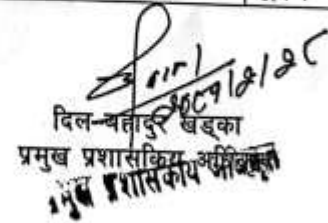 २०८१/२/२८
दिल बहादुर खड्का
प्रमुख प्रशासकिय अधिकृत
प्रमुख प्रशासकीय अधिकृत